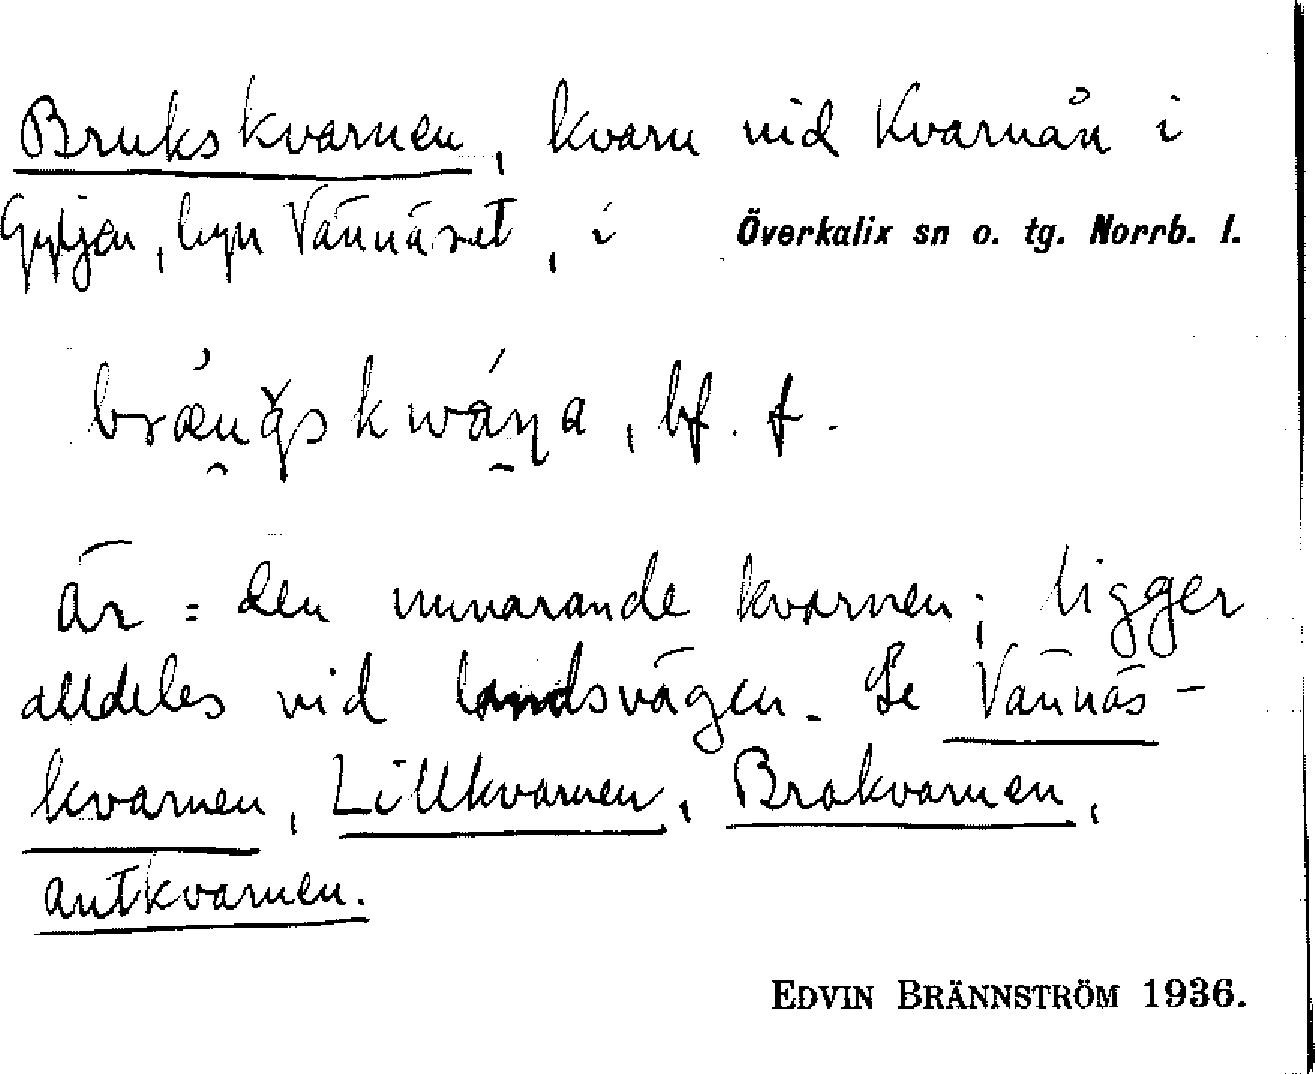 Brukskvarnen, kvarn vid Kvarnån i
Gyljen, byn Vännäset, i Överkalix sn o. tg. Norrb. l.
bf. f.
är = den nuvarande kvarnen; ligger
alldeles vid landsvägen. Se Vännäs-
kvarnen, Lillkvarnen, Brokvarnen,
Antkvarnen.
EDVIN BRÄNNSTRÖM 1936.